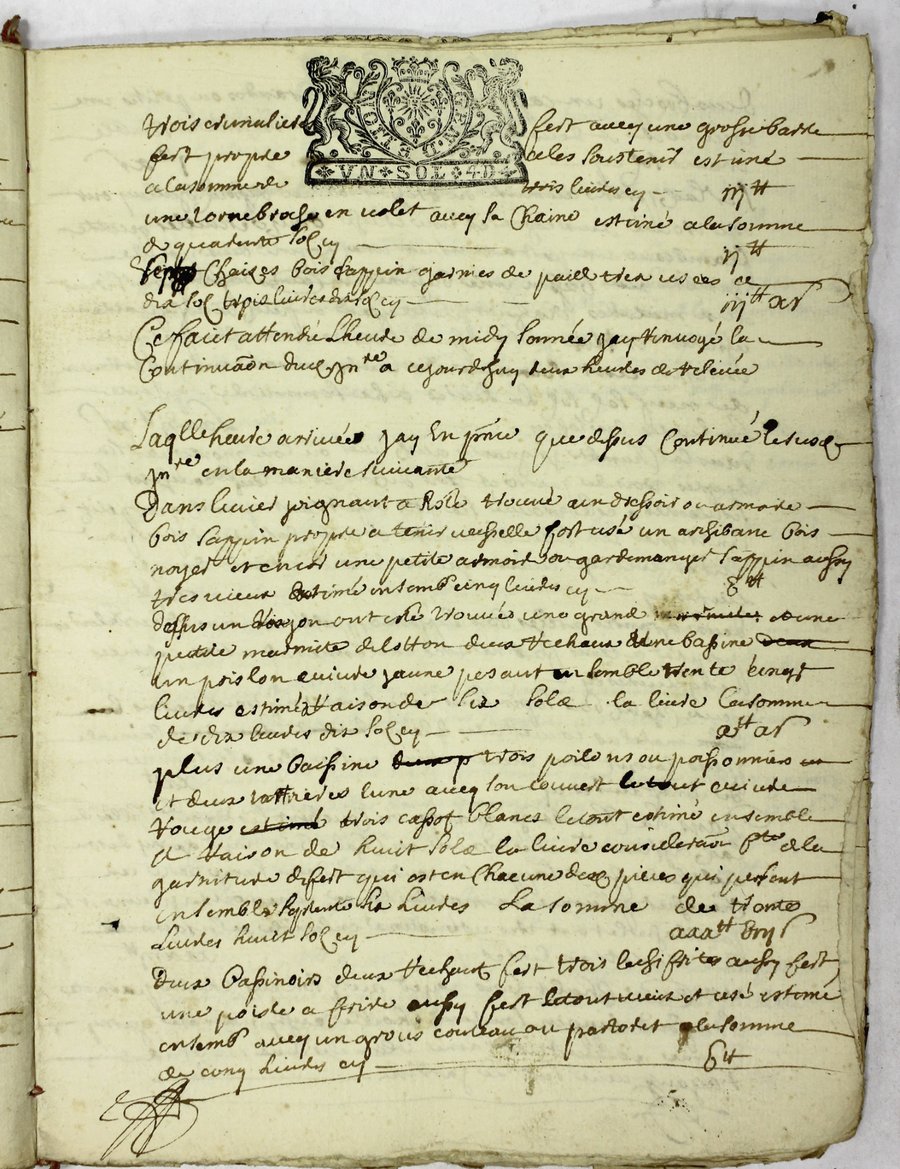 TION
GNA.D.
VN SOL 4D
trois cumaliere fert avecq une grosse barre
fert propre a les soustenir estimé
a la somme de trois livres cy iij ₶
une tornebroche en volet avecq sa chaine estimé a la somme
de quarente solz cy ij ₶
sept chaizes bois sappin garnies de paille tres usées a
dix solz trois livres dix solz cy iij ₶ x s
Ce faict attendu l'heure de midy sonnée jay renvoyé la
continuaon dud jnre a cejourdhuy deux heures de relevée
Laqlle heure arrivée jay en pnce que dessus continué le susd
jnre en la maniere suivante
Dans joignant a trouvé un dressoir ou armoire
bois sappin propre a tenir vesselle fort usé un archibanc bois
noyer et encor une petite armoire ou gardemanger sappin aussy
tres vieux estimé ensemb cinq livres cy ₶
dessus un ont esté trouvée une grand et une
petite marmite de lotton deux rechaux et une bassine deux
un poislon cuivre jaune pesant ensemble trente cinq
livres estimé a raison de six solz la livre la somme
de dix livres dix solz cy x ₶ x s
plus une bassine deux p trois poilons ou poissonnieres un
et deux l'une avecq son couvert le tout cuivre
rouge estimé trois cassot blancs le tout estimé ensemble
a raison de huit solz la livre consideraon fte de la
garniture de fert qui est en chacune des pieces qui pesent
ensemble septente six livres la somme de trente
livres huit solz cy xxx ₶ viij s
deux bassinoirs deux rechaut fert trois lechifrites aussy fert
une poisle a frire aussy fert le tout vieux et usé estimé
ensemb avecq un grous couteau ou partoret a la somme
de cinq livres cy ₶